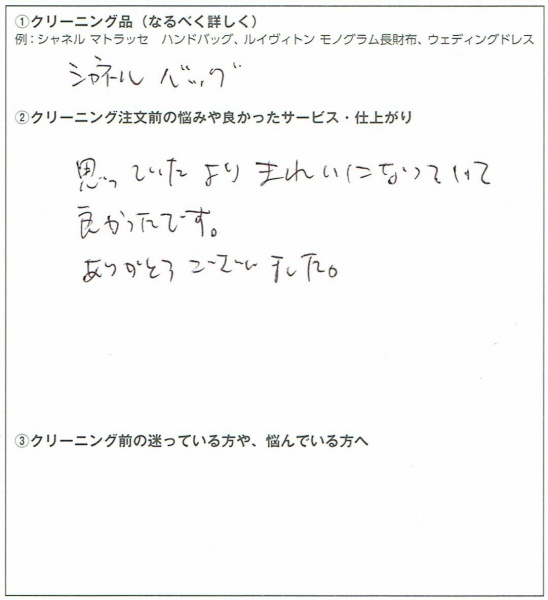 ①クリーニング品（なるべく詳しく）
例：シャネル マトラッセ　ハンドバッグ、ルイヴィトン モノグラム長財布、ウェディングドレス
シャネル バッグ
②クリーニング注文前の悩みや良かったサービス・仕上がり
思っていたよりきれいになっていて
良かったです。
ありがとうございました。
③クリーニング前の迷っている方や、悩んでいる方へ